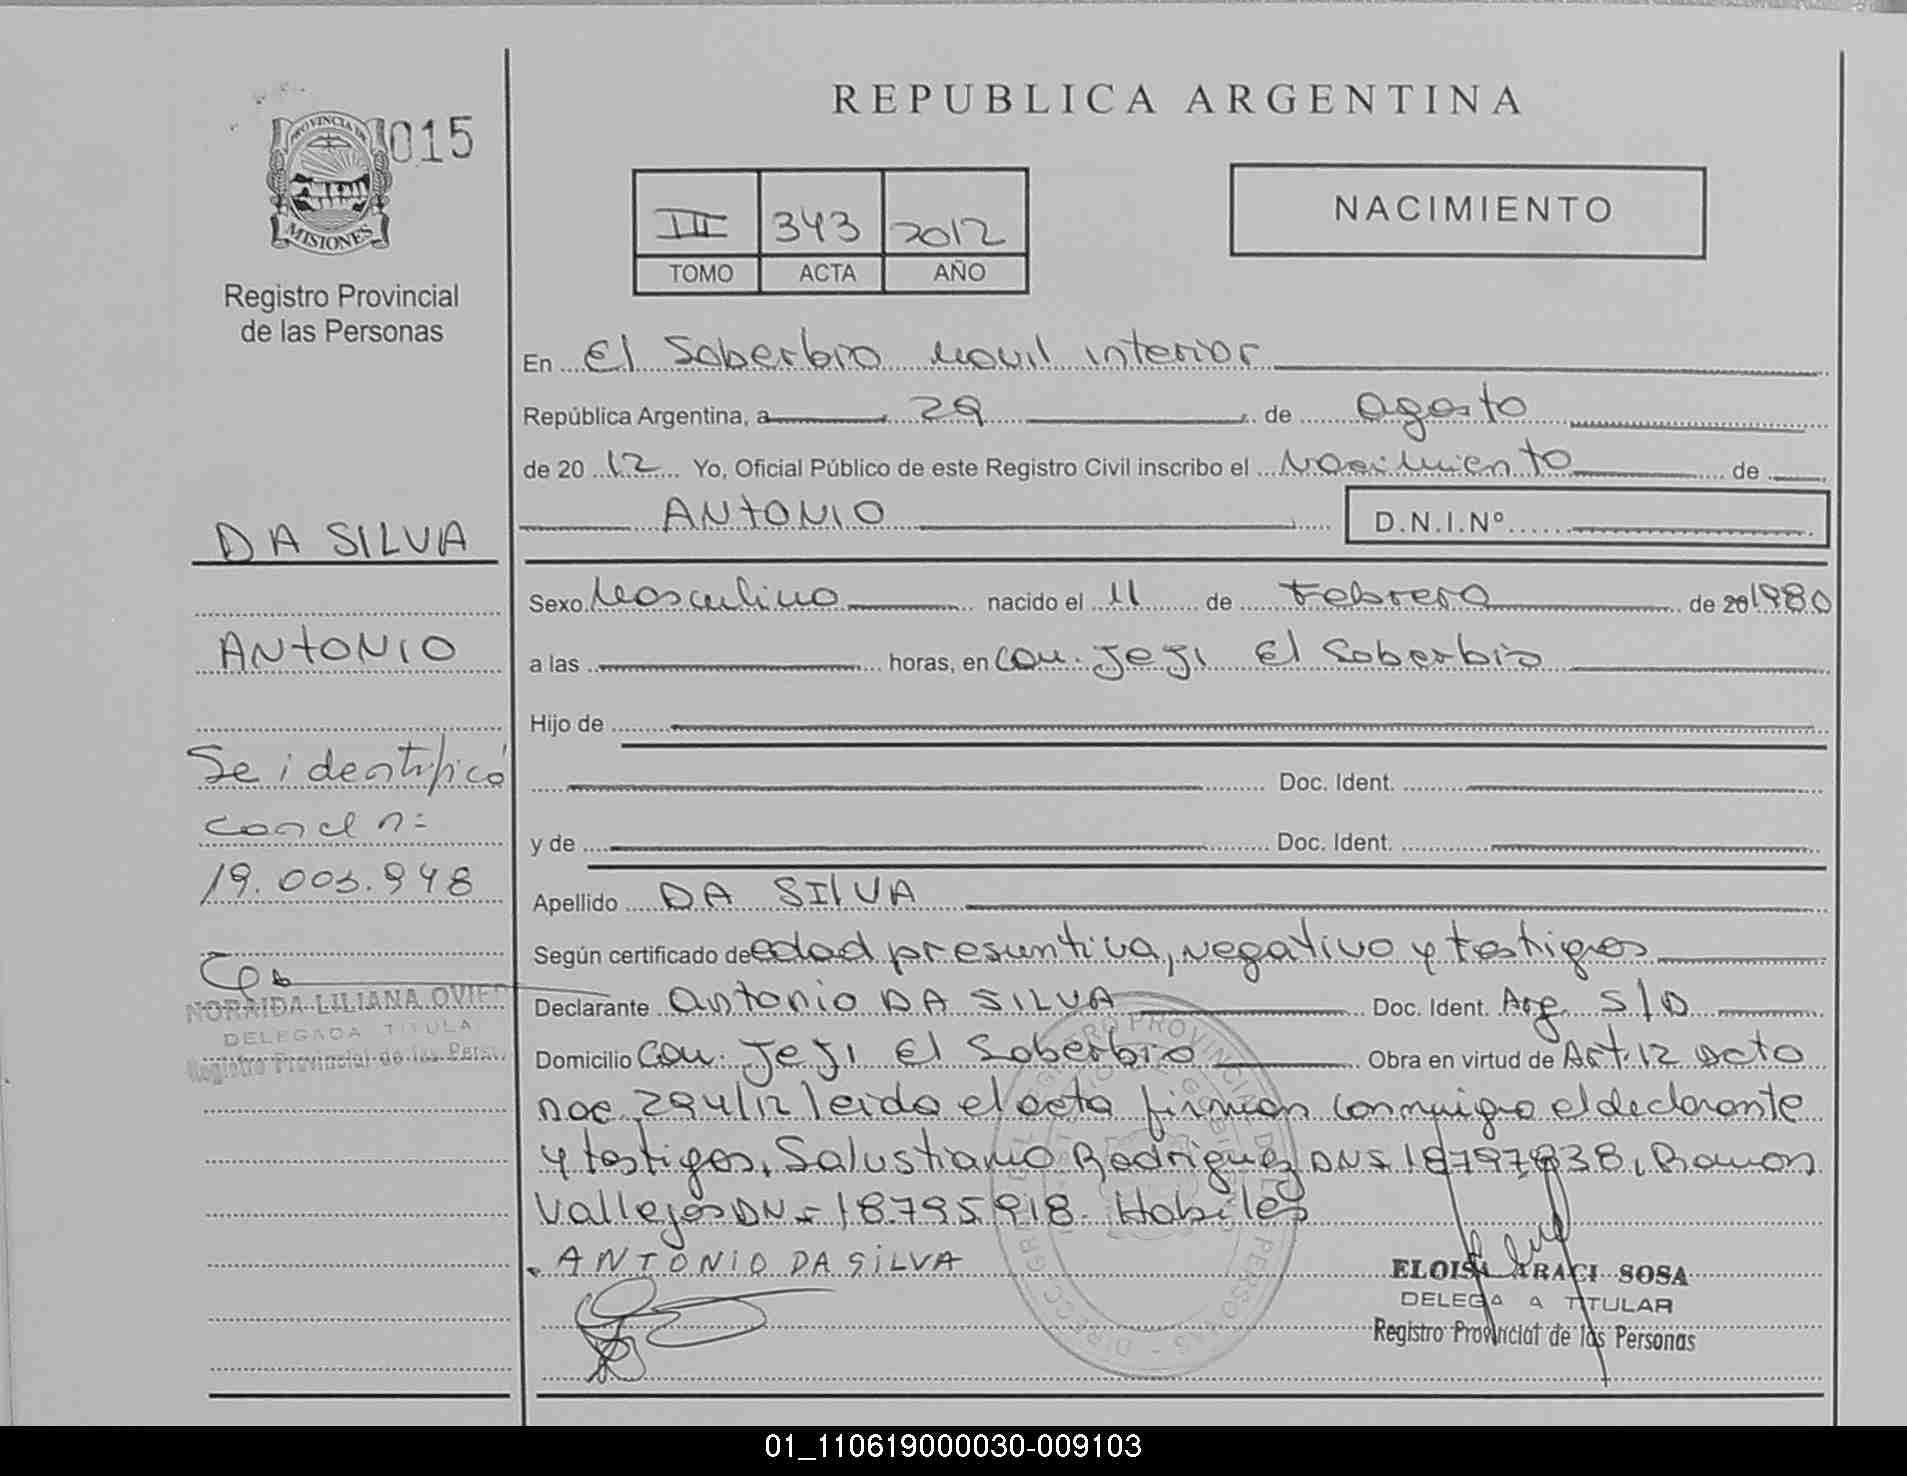 015
PROVINCIA DE
MISIONES
Registro Provincial
de las Personas
DA SILVA
ANTONIO
Se identificó
con el n:
19.003.948
NORAIDA LILIANA OVIED
DELEGADA TITULA
Registro Provincial de las Pers
REPUBLICA ARGENTINA
III 343 2012
TOMO ACTA AÑO
NACIMIENTO
En El Soberbio Movil interior
República Argentina, a 29 de agosto
de 2012 Yo, Oficial Público de este Registro Civil inscribo el Nacimiento de
ANTONIO D.N.I.Nº
Sexo Masculino nacido el 11 de Febrero de 20 1980
a las horas, en Col. Jeji El Soberbio
Hijo de
Doc. Ident.
y de Doc. Ident.
Apellido DA SILVA
Según certificado de edad presuntiva, negativo y testigos
Declarante Antonio DA SILVA Doc. Ident. Arg. S/D
Domicilio Col. Jeji El Soberbio Obra en virtud de Art. 12 Dcto
nac 294/12 leida el acta firman conmigo el declarante
y testigos, Salustiano Rodriguez DNI 18797838, Ramon
Vallejos DNI 18.795.918. Habiles
ANTONIO DA SILVA
ELOISA ARACI SOSA
DELEGA A TITULAR
Registro Provincial de las Personas
01_110619000030-009103